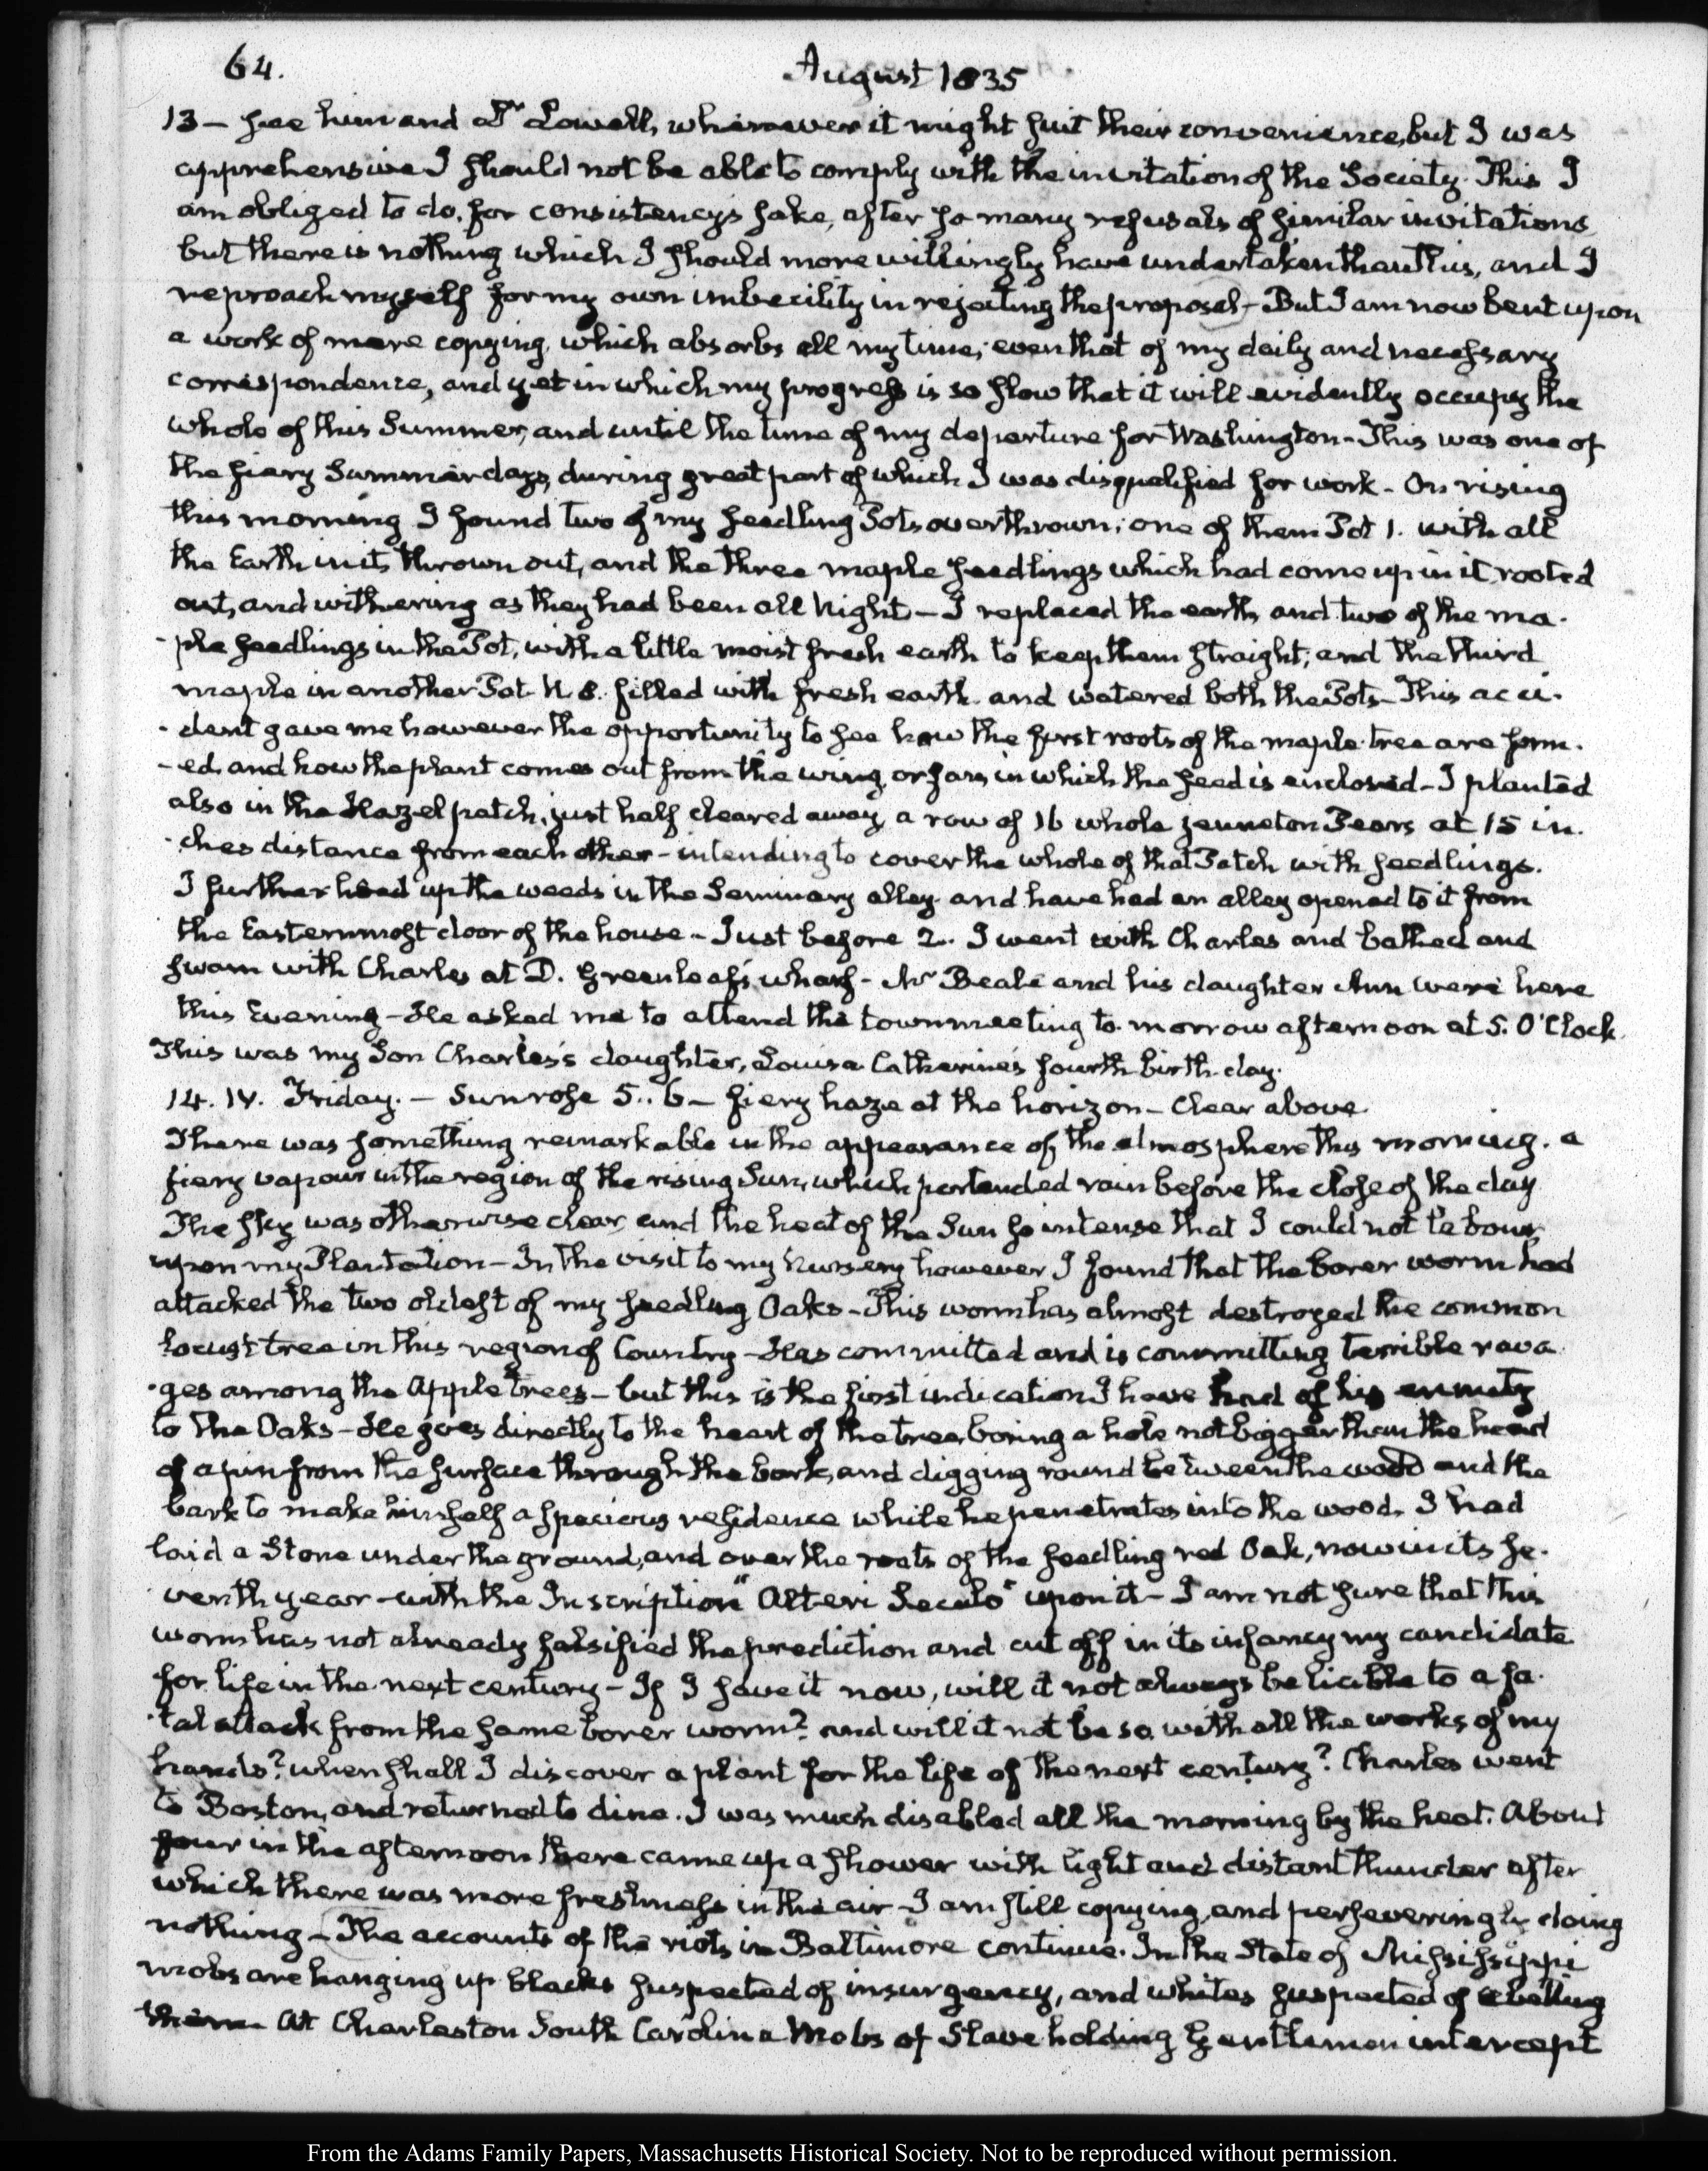 64.
August 1835
13 — see him and Dr Lowell, whenever it might suit their convenience, but I was
apprehensive I should not be able to comply with the invitation of the Society. This I
am obliged to do, for consistency's sake, after so many refusals of similar invitations
but there is nothing which I should more willingly have undertaken than this, and I
reproach myself for my own imbecility in rejecting the proposal — But I am now bent upon
a work of mere copying, which absorbs all my time; even that of my daily and necessary
correspondence, and yet in which my progress is so slow that it will evidently occupy the
whole of this Summer, and until the time of my departure for Washington - This was one of
the fiery Summer days, during great part of which I was disqualified for work - On rising
this morning I found two of my seedling Pots overthrown; one of them Pot 1. with all
the Earth in it, thrown out, and the three maple seedlings which had come up in it, rooted
out, and withering as they had been all Night - I replaced the earth, and two of the ma-
-ple seedlings in the Pot, with a little moist fresh earth to keep them straight; and the third
maple in another Pot N. 8. filled with fresh earth, and watered both the Pots - This acci-
-dent gave me however the opportunity to see how the first roots of the maple tree are form-
-ed, and how the plant comes out from the wing, or in which the seed is enclosed - I planted
also in the Hazel patch, just half cleared away, a row of 16 whole jenneton Pears at 15 in-
-ches distance from each other - intending to cover the whole of that Patch with seedlings.
I further hoed up the weeds in the Seminary alley and have had an alley opened to it from
the Easternmost door of the house - Just before 2.. I went with Charles and bathed and
swam with Charles at D. Greenleaf's wharf - Mr Beale and his daughter Ann were here
this Evening - He asked me to attend the town meeting to-morrow afternoon at 5. O'Clock.
This was my Son Charles's daughter, Louisa Catherine's fourth birth-day.
14. IV. Friday. — Sun rose 5..6 — fiery haze at the horizon - Clear above.
There was something remarkable in the appearance of the atmosphere this morning. a
fiery vapour in the region of the rising Sun, which portended rain before the close of the day
The sky was otherwise clear, and the heat of the Sun so intense that I could not labour
upon my Plantation - In the visit to my Nursery however I found that the borer worm had
attacked the two oldest of my seedling Oaks - This worm has almost destroyed the common
locust tree in this region of Country - Has committed and is committing terrible rava-
-ges among the Apple trees - but this is the first indication I have had of his enmity
to the Oaks - He goes directly to the heart of the tree, boring a hole not bigger than the head
of a pin from the surface through the bark, and digging round between the wood and the
bark to make himself a spacious residence while he penetrates into the wood. I had
laid a Stone under the ground, and over the roots of the seedling red Oak, now in its se-
venth year - with the Inscription "Alteri Seculo" upon it - I am not sure that this
worm has not already falsified the prediction and cut off in its infancy my candidate
for life in the next century - If I save it now, will it not always be liable to a fa-
-tal attack from the same borer worm? and will it not be so, with all the works of my
hands? when shall I discover a plant for the life of the next century? Charles went
to Boston, and returned to dine. I was much disabled all the morning by the heat. About
four in the afternoon there came up a shower with light and distant thunder after
which there was more freshness in the air - I am still copying, and perseveringly doing
nothing - The accounts of the riots in Baltimore continue. In the State of Mississippi
mobs are hanging up blacks suspected of insurgency, and whites suspected of abetting
them At Charleston South Carolina Mobs of Slave holding Gentlemen intercept
From the Adams Family Papers, Massachusetts Historical Society. Not to be reproduced without permission.